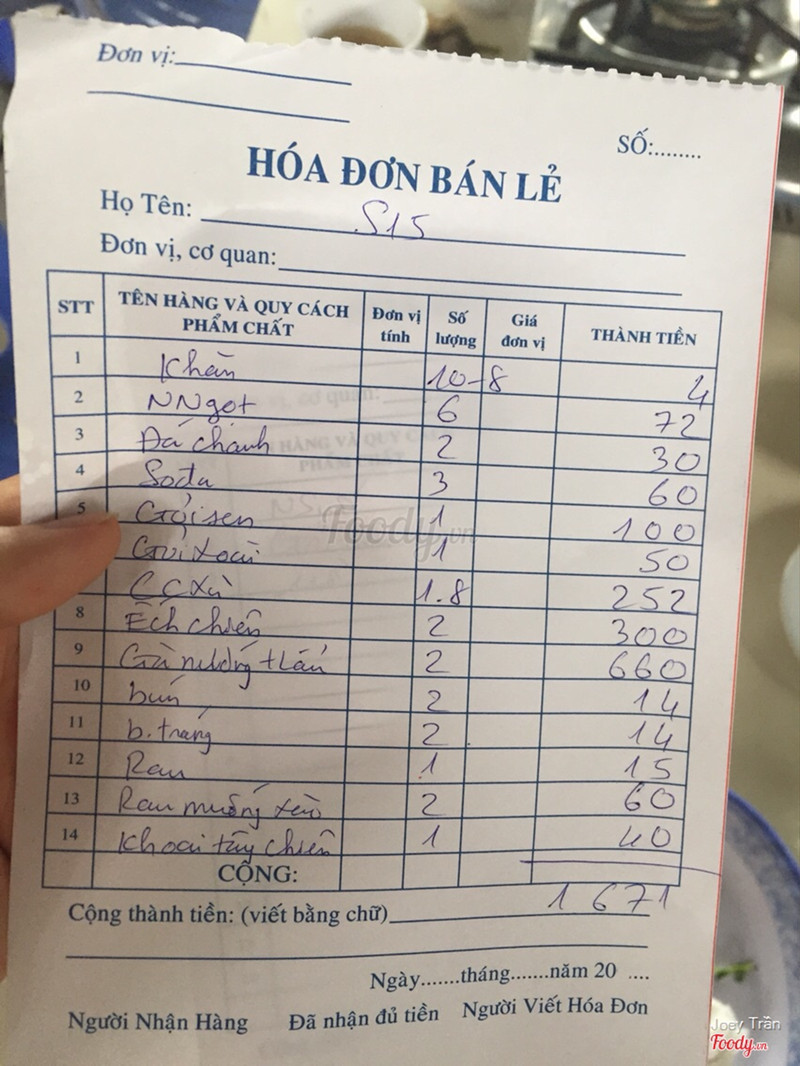 Đơn vị:
SỐ:........
HÓA ĐƠN BÁN LẺ
Họ Tên: S15
Đơn vị, cơ quan:
STT TÊN HÀNG VÀ QUY CÁCH PHẨM CHẤT Đơn vị tính Số lượng Giá đơn vị THÀNH TIỀN
1 Khăn 10-8 4
2 NNgọt 6 72
3 Đá chanh 2 30
4 Sođa 3 60
5 Gỏi sen 1 100
Gỏi xoài 1 50
1.8 252
8 Ếch chiên 2 300
9 Gà nướng + lẩu 2 660
10 bún 2 14
11 b. tráng 2 14
12 Rau 1 15
13 Rau muống xào 2 60
14 Khoai tây chiên 1 40
CỘNG:
1 671
Cộng thành tiền: (viết bằng chữ)
Ngày.......tháng.......năm 20 ....
Người Nhận Hàng Đã nhận đủ tiền Người Viết Hóa Đơn
Foody.vn
Joey Trần
Foody.vn